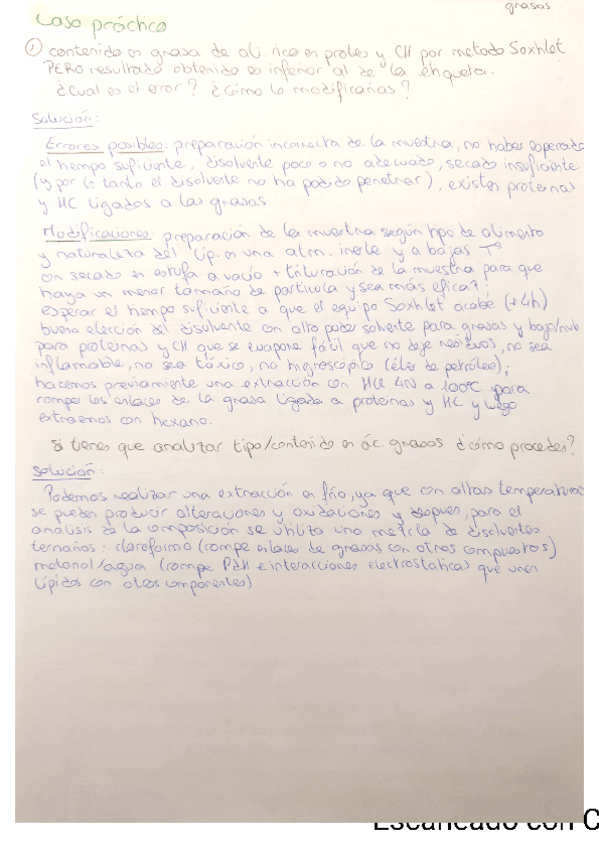 grasas
Caso práctico
① contenido en grasa de ali. rico en protes y CH por metodo Soxhlet
PERO resultado obtenido es inferior al de la etiqueta.
¿cual es el error? ¿cómo lo modificarias?
Solución:
Errores posibles: preparación incorrecta de la muestra, no haber esperado
el tiempo suficiente, disolvente poco o no adecuado, secado insuficiente
(y por lo tanto el disolvente no ha podido penetrar), existen proteinas
y HC ligados a las grasas
Modificaciones: preparación de la muestra según tipo de alimento
y naturaleza del lip. en una atm. inerte y a bajas Tª
con secado en estufa a vacío + trituración de la muestra para que
haya un menor tamaño de partícula y sea más eficaz;
esperar el tiempo suficiente a que el equipo Soxhlet acabe (+4h)
buena elección del disolvente con alto poder solvente para grasas y bajo/nulo
para proteinas y CH que se evapore fácil que no deje residuos, no sea
inflamable, no sea tóxico, no higroscópico (éter de petróleo);
hacemos previamente una extracción con HCl 4N a 100ºC para
romper los enlaces de la grasa ligada a proteinas y HC y luego
extraemos con hexano.
Si tienes que analizar tipo/contenido en ác. grasos ¿cómo procedes?
Solución:
Podemos realizar una extracción en frío, ya que con altas temperaturas
se pueden producir alteraciones y oxidaciones y despues, para el
analisis de la composición se utiliza una mezcla de disolventes
ternarios: cloroformo (rompe enlaces de grasas con otros compuestos)
metanol/agua (rompe PdH e interacciones electrostaticas que unen
lípidos con otros componentes)
Escaneado con C